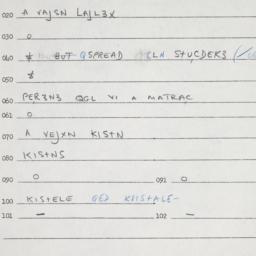 020 A VAJSN LAJL3X
030 O
040 * BUT QSPREAD
050 *
060 PER3N3 QGL VI A MATRAC
061 O
070 A VEJXN KISTN
080 KISTNS
090 O 091 O
100 KISTELE GED KIISTALE-
101 — 102 —